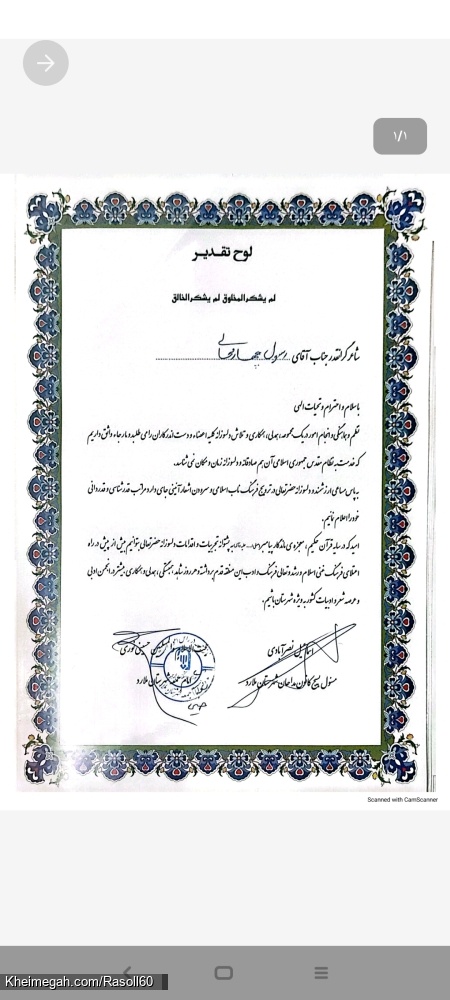 ۱/۱
لوح تقدیر
لم یشکر المخلوق لم یشکر الخالق
شاعر گرانقدر جناب آقای رسول چهارمحالی
با سلام و احترام و تحیات الهی
نظم و هماهنگی و انجام امور در یک مجموعه، همدلی، همکاری و تلاش دلسوزانه کلیه اعضاء و دست اندرکاران را می طلبد و ما رجاء واثق داریم
که خدمت به نظام مقدس جمهوری اسلامی آن هم صادقانه و دلسوزانه زمان و مکان نمی شناسد.
به پاس مساعی ارزشمند و دلسوزانه حضرتعالی در ترویج فرهنگ ناب اسلامی و سرودن اشعار آئینی جای دارد مراتب قدرشناسی و قدردانی
خود را اعلام نمایم.
امید که در سایه قرآن حکیم، معجزه ی ماندگار پیامبر به پشتوانه تجربیات و اقدامات دلسوزانه حضرتعالی بتوانیم بیش از پیش در راه
اعتلای فرهنگ غنی اسلام و رشد و تعالی فرهنگ و ادب این منطقه قدم برداشته و هر روز شاهد، همبستگی، همدلی و همکاری بیشتر در انجمن ادبی
و عرصه شعر و ادبیات کشور به ویژه شهرستان باشیم.
اسماعیل نصرآبادی
مسئول بسیج کانون مداحان شهرستان ملارد
حجت الاسلام و المسلمین حسینی
امام جمعه شهرستان ملارد
Scanned with CamScanner
Kheimegah.com/Rasoll60